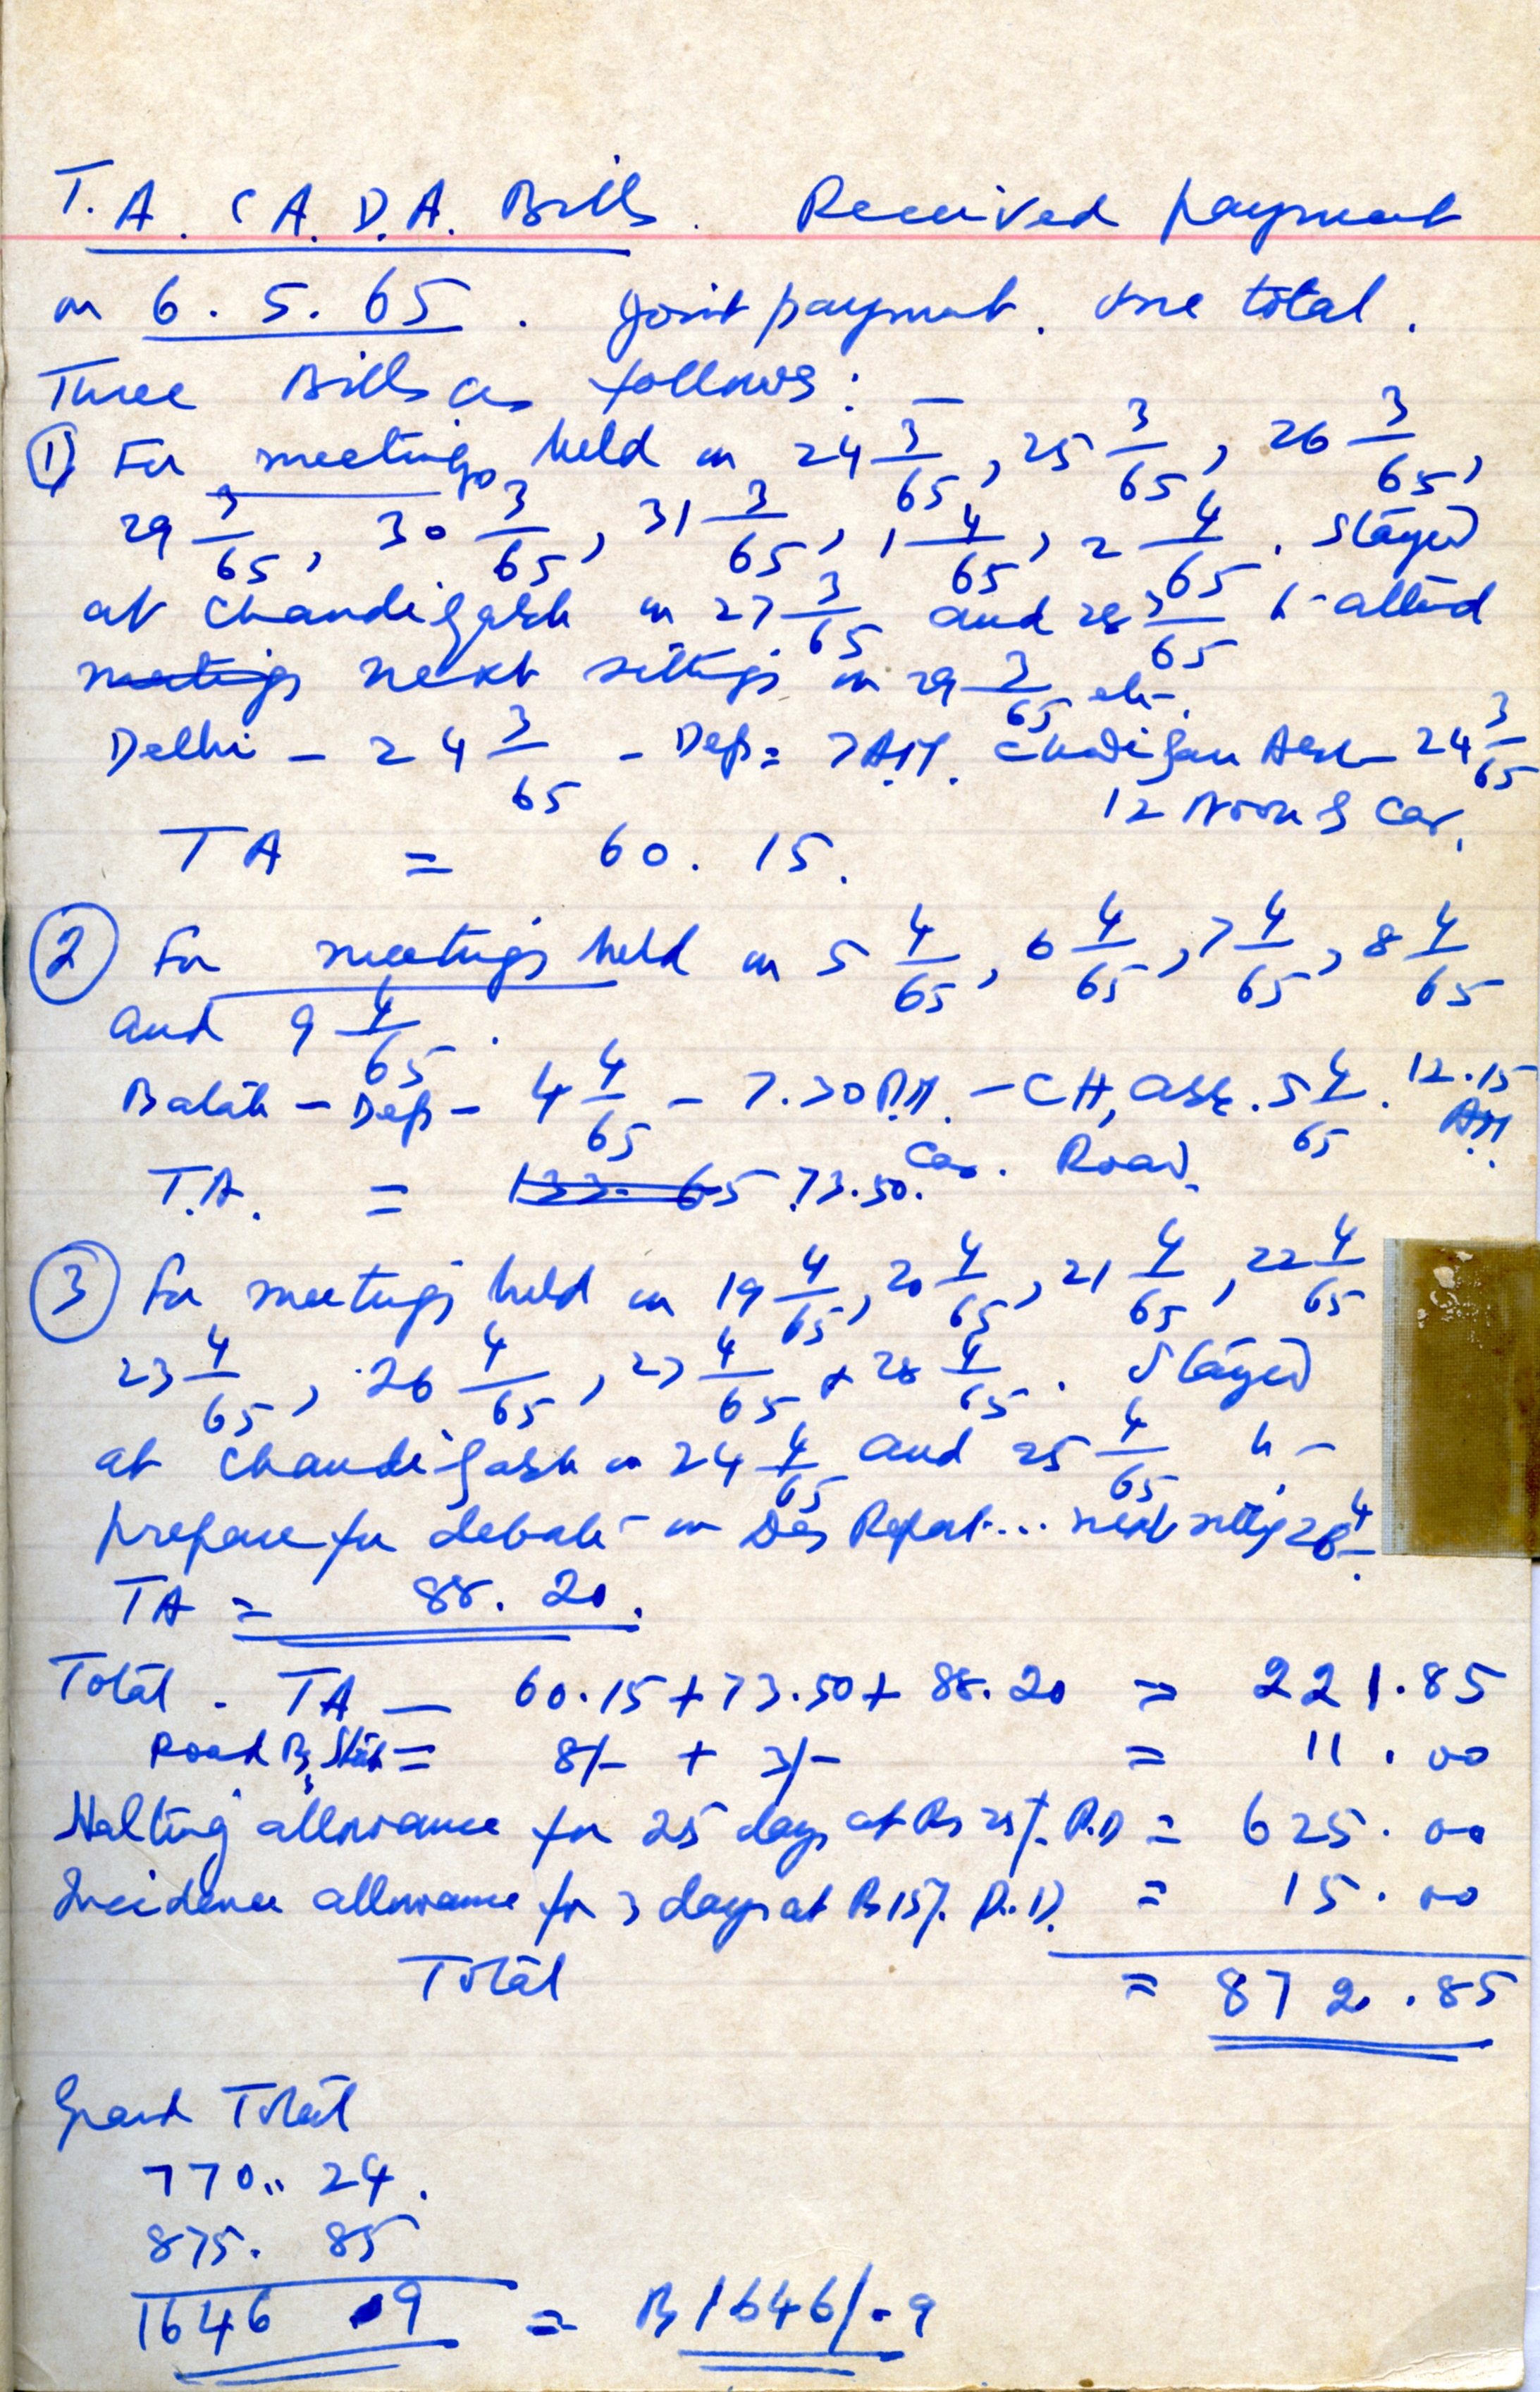 T.A. C A.D.A. Bills. Received payment
on 6.5.65. Joint payment. One total.
Three Bills as follows: —
① For meetings held on 24 3/65, 25 3/65, 26 3/65,
29 3/65, 30 3/65, 31 3/65, 1 4/65, 2 4/65. Stayed
at Chandigarh on 27 3/65 and 28 3/65 to attend
meetings next sittings on 29 3/65 etc.
Delhi – 24 3/65 – Dep = 7 AM. 24 3/65
12 Noon Car.
TA = 60.15.
② For meetings held on 5 4/65, 6 4/65, 7 4/65, 8 4/65
and 9 4/65.
Batala – Dep – 4 4/65 – 7.30 P.M. – CH, arr. 5 4/65. 12.15 AM.
Car. Road.
T.A. = 133.65 73.50.
③ For meetings held on 19 4/65, 20 4/65, 21 4/65, 22 4/65
23 4/65, 26 4/65, 27 4/65 + 28 4/65. Stayed
at Chandigarh on 24 4/65 and 25 4/65 to
prepare for debate on Report... next sitting 26 4
TA = 88.20.
Total. TA — 60.15 + 73.50 + 88.20 = 221.85
Road = 8/- + 3/- = 11.00
Halting allowance for 25 days at Rs 25/. P.D = 625.00
Incidence allowance for 3 days at Rs 15/. P.D. = 15.00
Total = 872.85
Grand Total
770.. 24.
875. 85
1646 .9 = Rs 1646/.9